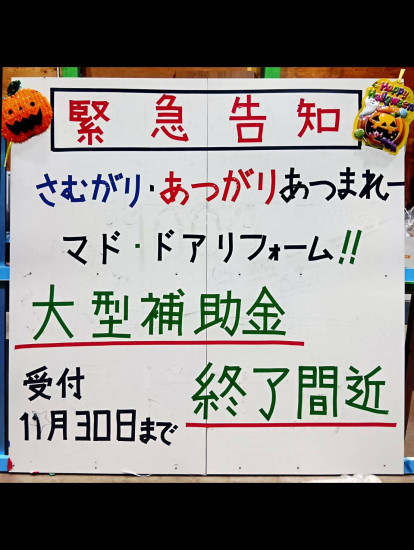 緊急告知
Happy Halloween
さむがり・あつがりあつまれー
マド・ドアリフォーム!!
大型補助金
受付 終了間近
11月30日まで